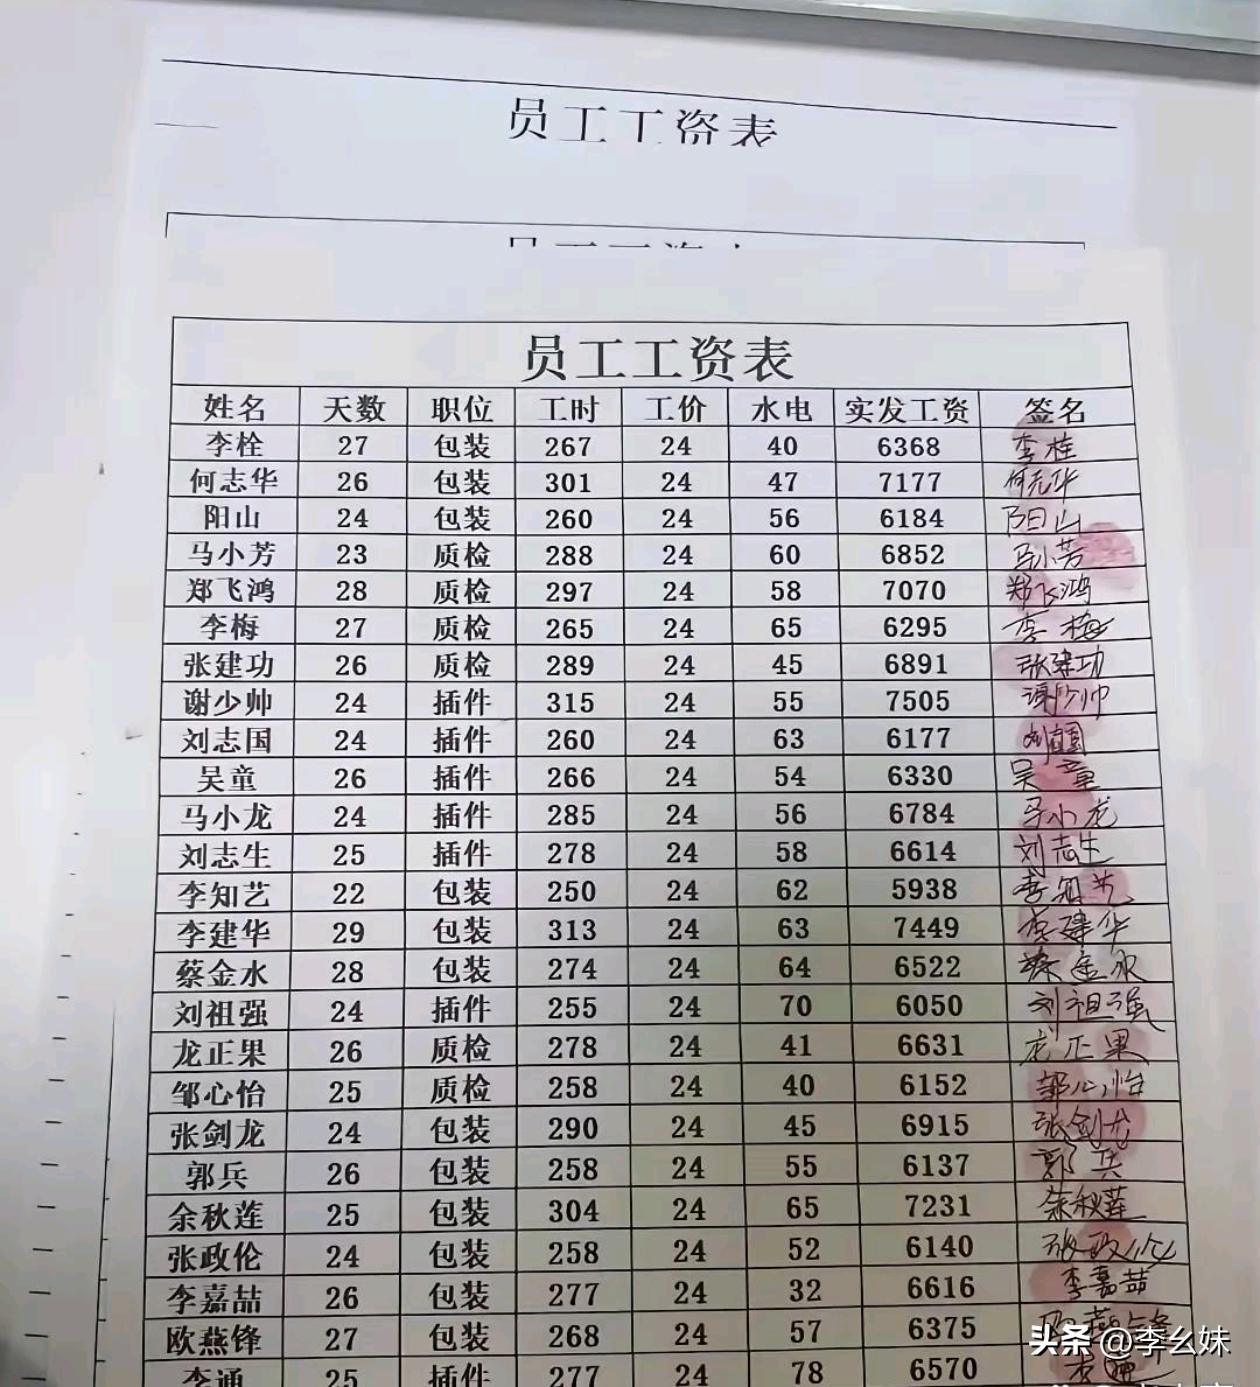 员工工资表
员工工资表
员工工资表
姓名 天数 职位 工时 工价 水电 实发工资 签名
李栓 27 包装 267 24 40 6368 李栓
何志华 26 包装 301 24 47 7177 何志华
阳山 24 包装 260 24 56 6184 阳山
马小芳 23 质检 288 24 60 6852 马小芳
郑飞鸿 28 质检 297 24 58 7070 郑飞鸿
李梅 27 质检 265 24 65 6295 李梅
张建功 26 质检 289 24 45 6891 张建功
谢少帅 24 插件 315 24 55 7505 谢少帅
刘志国 24 插件 260 24 63 6177 刘志国
吴童 26 插件 266 24 54 6330 吴童
马小龙 24 插件 285 24 56 6784 马小龙
刘志生 25 插件 278 24 58 6614 刘志生
李知艺 22 包装 250 24 62 5938 李知艺
李建华 29 包装 313 24 63 7449 李建华
蔡金水 28 包装 274 24 64 6522 蔡金水
刘祖强 24 插件 255 24 70 6050 刘祖强
龙正果 26 质检 278 24 41 6631 龙正果
邹心怡 25 质检 258 24 40 6152 邹心怡
张剑龙 24 包装 290 24 45 6915 张剑龙
郭兵 26 包装 258 24 55 6137 郭兵
余秋莲 25 包装 304 24 65 7231 余秋莲
张政伦 24 包装 258 24 52 6140 张政伦
李嘉喆 26 包装 277 24 32 6616 李嘉喆
欧燕锋 27 包装 268 24 57 6375
李通 25 插件 277 24 78 6570 李通
头条 @李幺妹